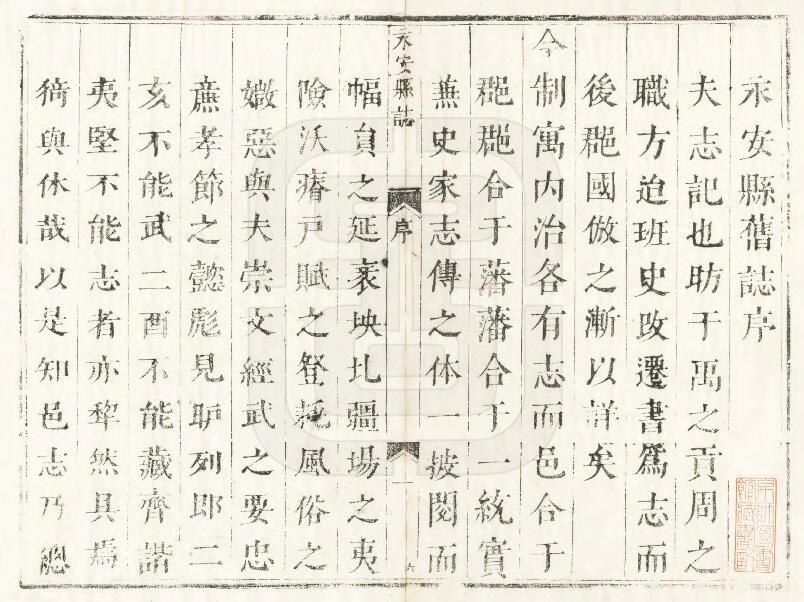 永安縣舊誌序
夫志記也昉于禹之貢周之
職方迨班史攺遷書為志而
後郡國倣之漸以詳矣
今制寓内治各有志而邑合于
郡郡合于藩藩合于一統實
兼史家志傳之体一披閱而
永安縣誌
序
一
六
幅員之延袤坱圠疆場之夷
險沃瘠戸賦之登耗風俗之
媺惡與夫崇文經武之要忠
亷孝節之懿彪見胪列即二
亥不能武二酉不能藏齊諧
夷堅不能志者亦犂然具焉
猗與休哉以是知邑志乃總